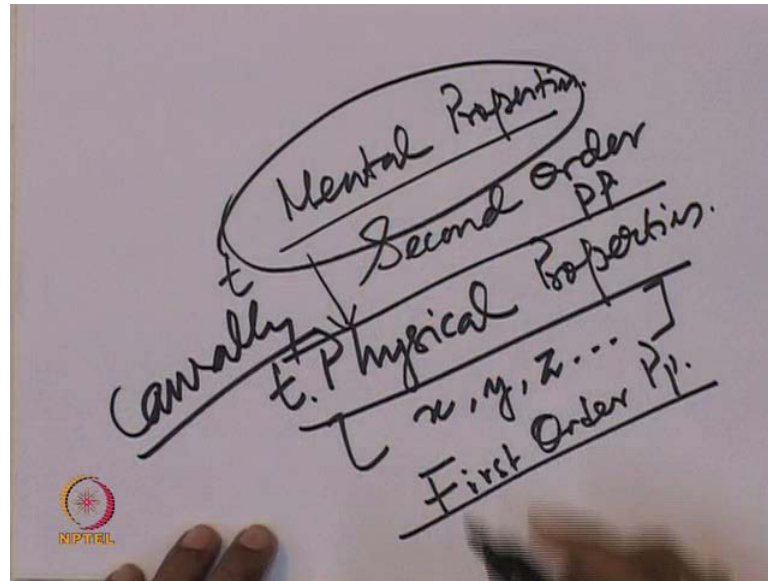 Mental Properties.
Second Order
PP
t
Causally
t. Physical Properties.
[ x, y, z ... ]
First Order Pp.
NPTEL